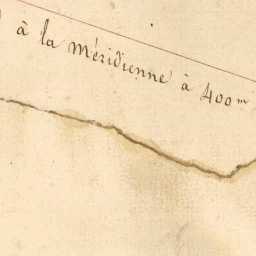 à la méridienne à 400m